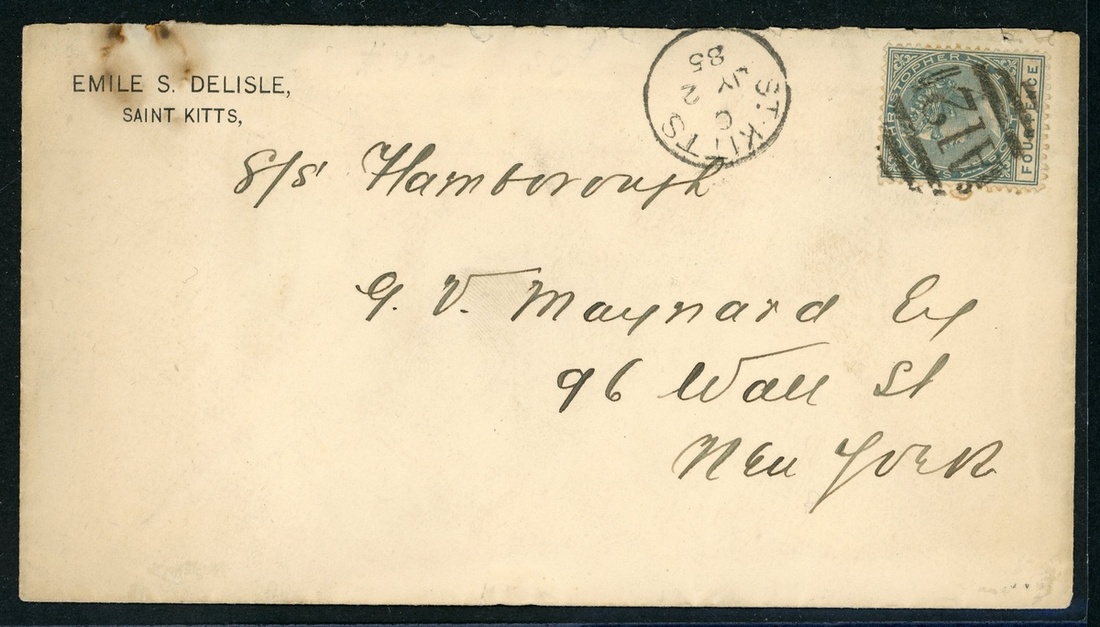 EMILE S. DELISLE,
SAINT KITTS,
ST. KITTS
C
JY 2
85
CHRISTOPHER
FOURPENCE
A12
S/S Hamborough
G. V. Maynard Esq
96 Wall St
New York